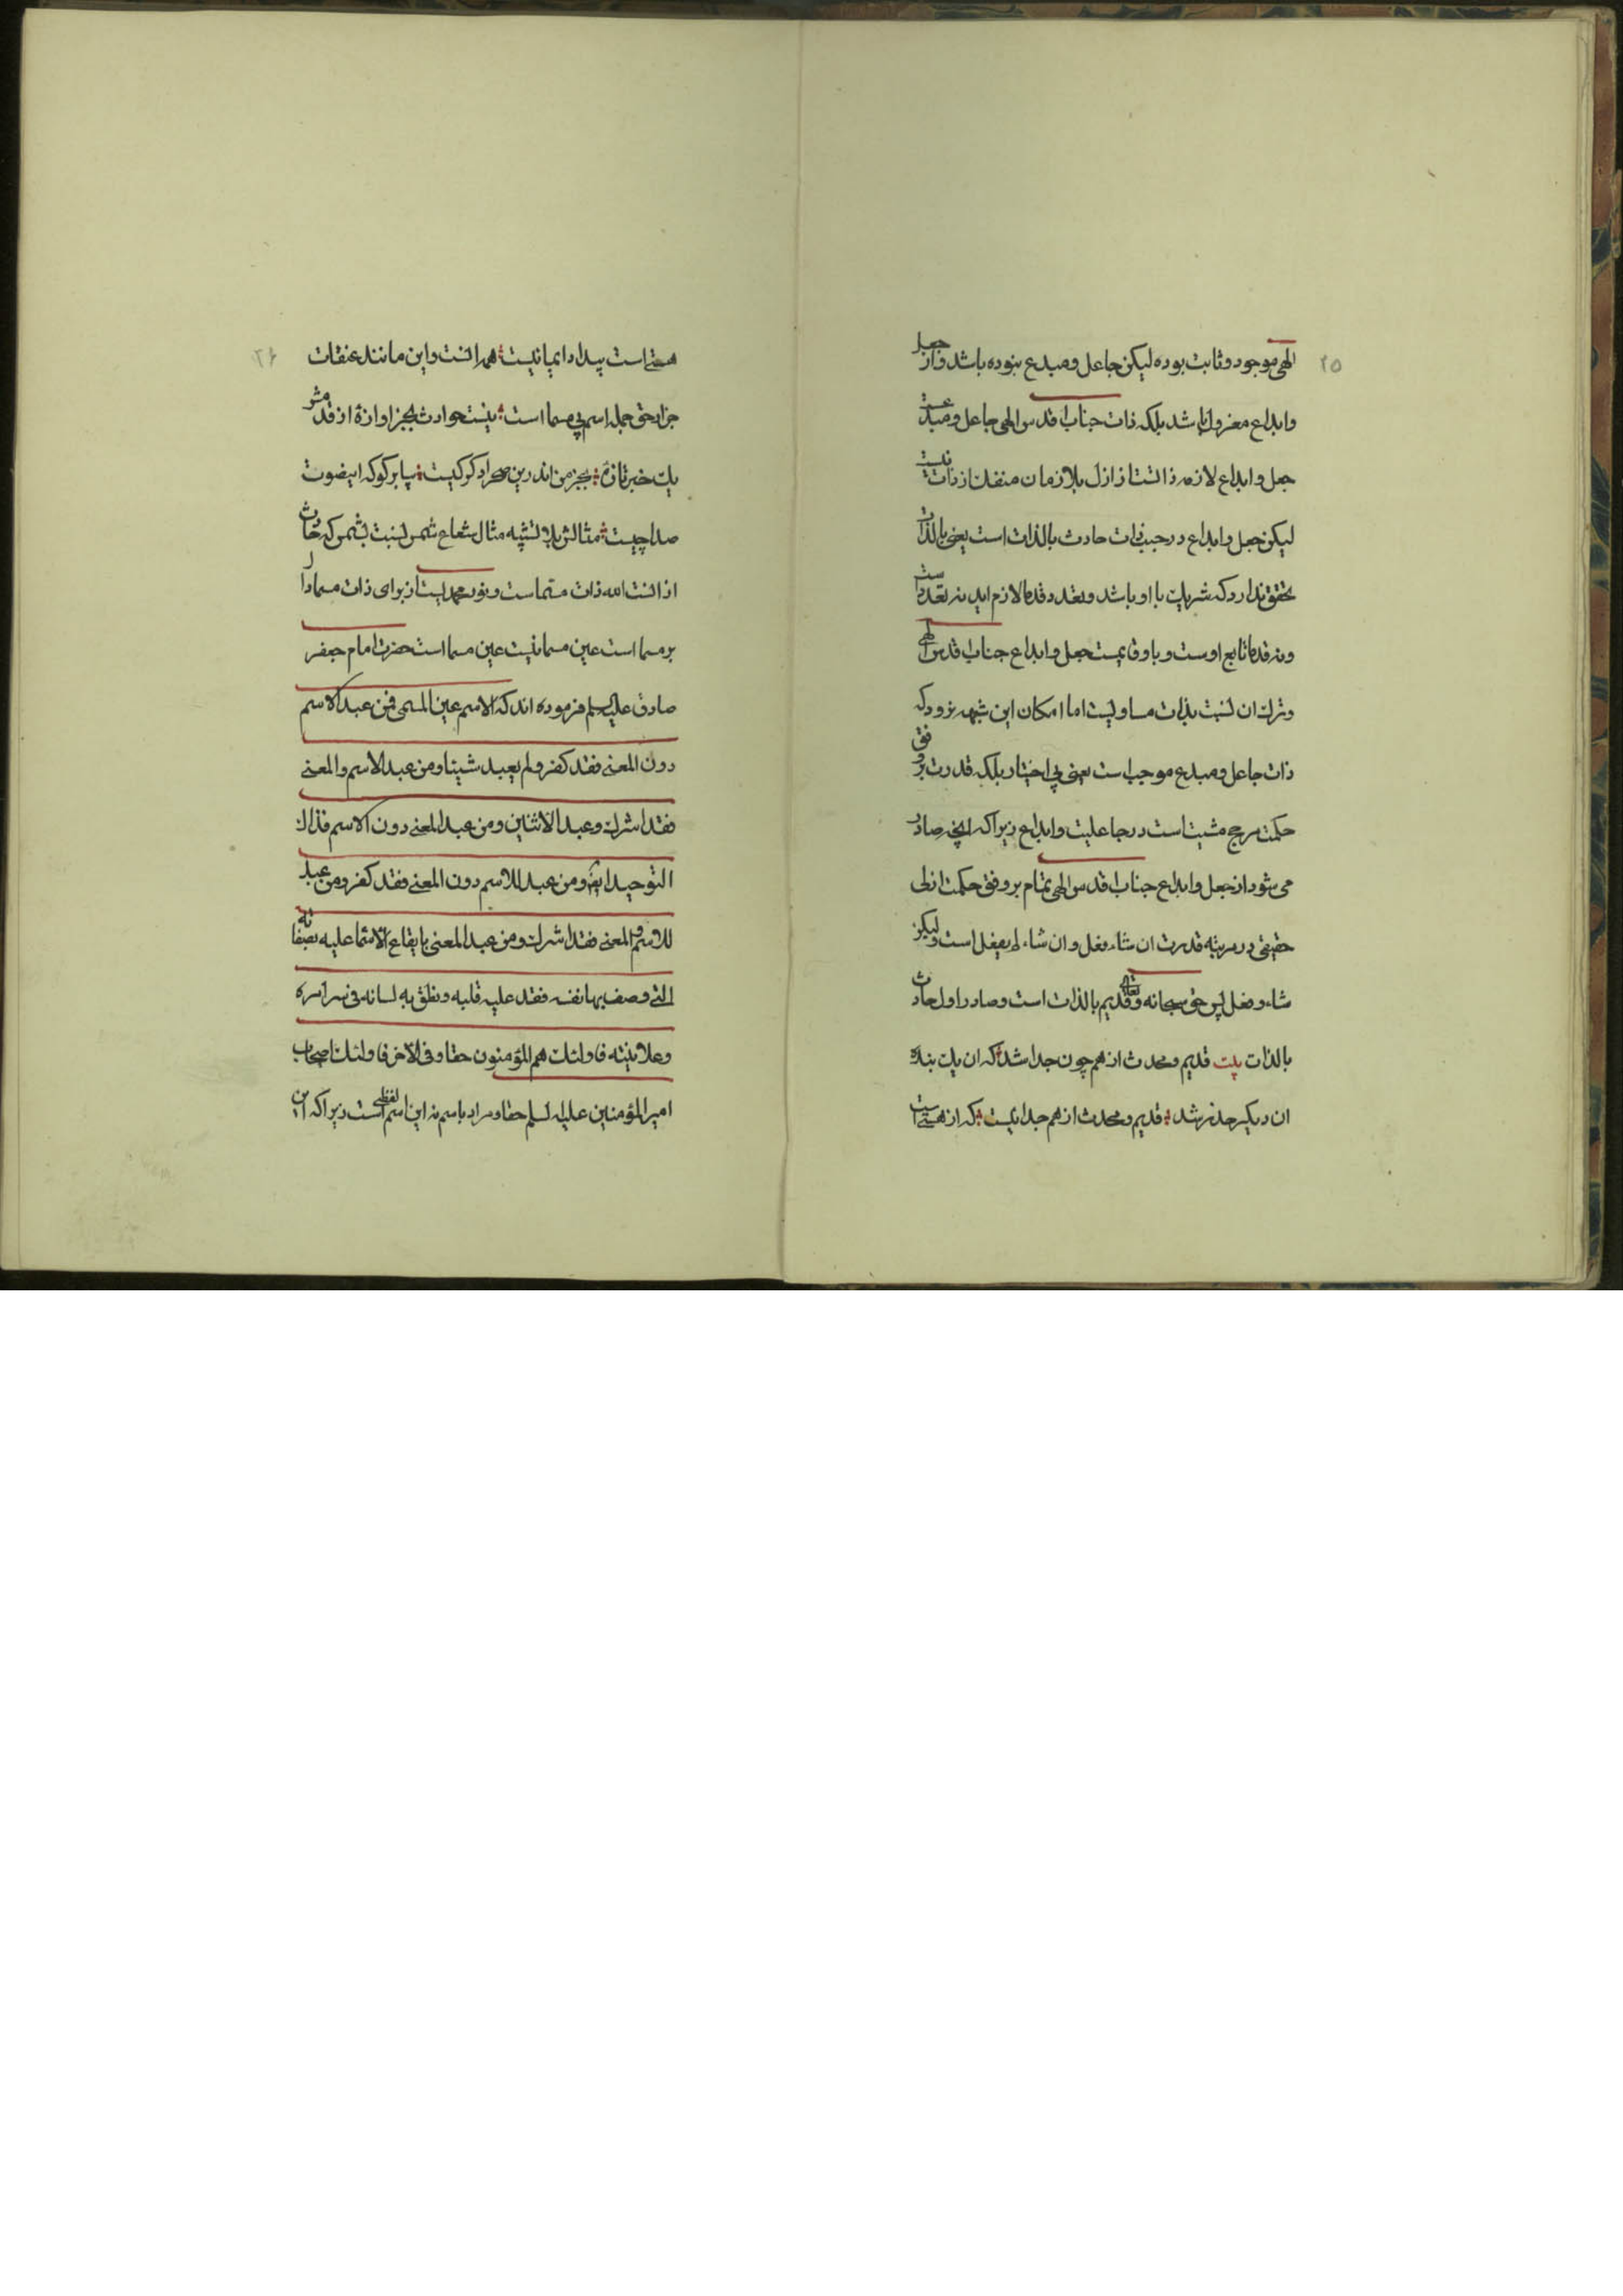 ۲۵
الهی موجود و ثابت بوده لیکن جاعل و مبدع نبوده باشد و از جعل
و ابداع معزول باشد بلکه ذات جناب اقدس الهی جاعل و مبدعست
جعل و ابداع لازمه ذاتست از ازل بلا زمان منفک از ذات نیست
لیکن جعل و ابداع در جنب ذات حادث بالذات است یعنی بالذات
تحقق ندارد که شریک با او باشد و تعدد قدما لازم اید نه تعدد است
و نه قدما تابع اوست و با وقایمست جعل و ابداع جناب قدس الهی
و ترک ان نسبت بذات مساویست اما امکان این شبهه نرود که
ذات جاعل و مبدع موجب است یعنی بی اختیار بلکه قدرت بر وفق
حکمت مرجح مشیت است در جاعلیت و ابداع زیرا که انچه صادر
می شود از جعل و ابداع جناب اقدس الهی تمام بر وفق حکمت ازلی
حقیقی در مرتبه قدرت ان شاء فعل و ان شاء لم یفعل است ولیکن
شاء و فعل پس حق سبحانه و تعالی قدیم بالذات است و صادر اول حادث
بالذات بیت قدیم و محدث از هم چون جدا شد که ان یک بنده
ان دیکر خدا شد قدیم و محدث از هم جدا نیست که از هستی است
۲۶
هستی است پیدا دایما نیست همه انست و این مانند عنقاست
جز از حق جمله اسم بی مسما است نیست حوادث بجز اوازهٔ از قدم شو
یک خبر تازهٔ بجز من اندرین صحرا دکر کیست بیا بر کو که این صوت
صدا چیست مثالش بلا تشبیه مثال شعاع شمس نسبت بشمس که حادث
از انست الله ذات مسماست و نور محمدیست از برای ذات مسما دال
بر مسما است عین مسما نیست عین مسما است حضرت امام جعفر
صادق علیه السلم فرموده اند که الاسم عین المسمی فمن عبد الاسم
دون المعنی فقد کفر و لم یعبد شیئا و من عبد الاسم و المعنی
فقد اشرک و عبد الاثنین و من عبد المعنی دون الاسم فذاک
التوحید ایضا و من عبد للاسم دون المعنی فقد کفر و من عبد
للاسم و المعنی فقد اشرک و من عبد المعنی بایقاع الاسما علیه بصفاته
التی وصف بها نفسه فعقد علیه قلبه و نطق به لسانه فی سرائره
و علانیته فاولئک هم المؤمنون حقا و فی الاخر فاولئک اصحاب
امیر المؤمنین علیه السلم حقا و مراد باسم نه این اسم لفظی است زیرا که این